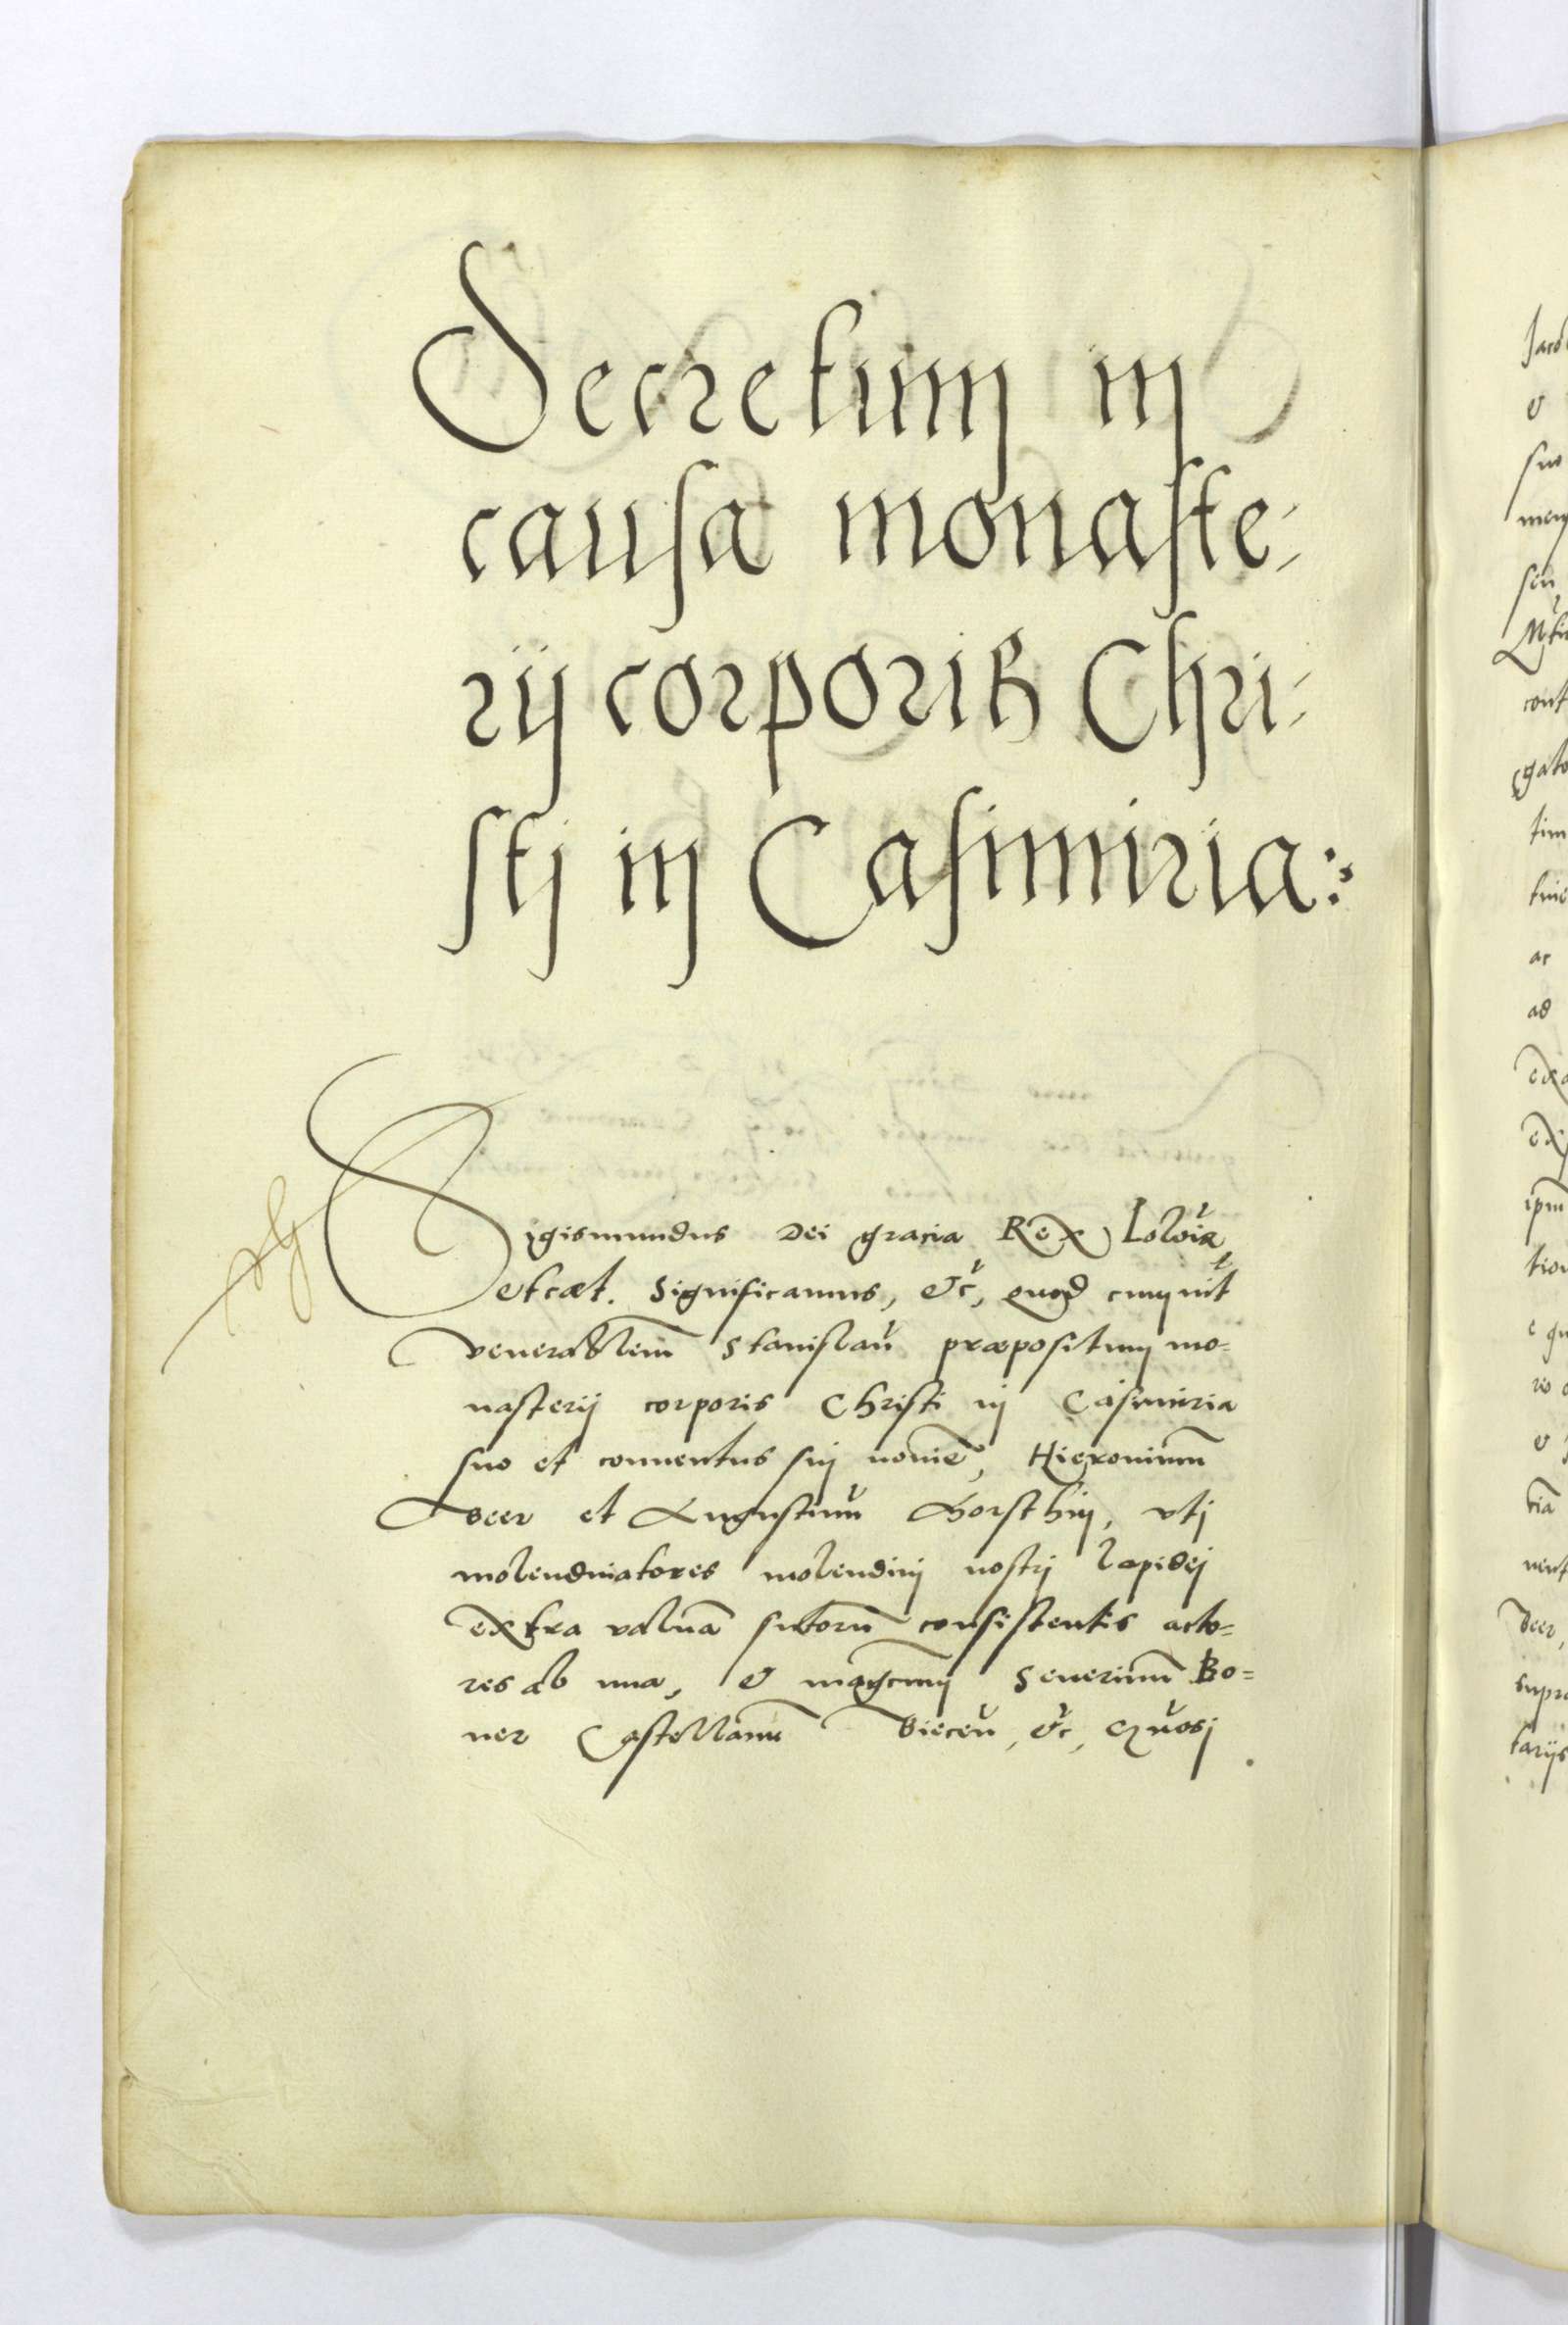 Decretum in
causa monaste-
rij corporis Chri-
stj in Casimiria:
Sigismundus Dei gracia Rex Polõiæ
etcæt. Significamus, &c, quod cum int̃
venerabilem̃ Stanislaũ præpositum mo-
nasterij corporis Christi in Casimiria
suo et conuentus sui nomiẽ, Hieronimũ
Beer et Augustinũ Horsthin, vtj
molendinatores molendinj nostrj lapidej
extra valuã sutorũ consistentis acto-
res ab una, & mag̃cum Seuerinũ Bo-
ner Castellanũ Bieceñ, &c, quosj